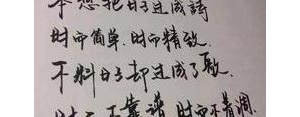 本想把日子过成詩
时而简单，时而精致
不料日子却过成了歌
时而不靠谱，时而不着调